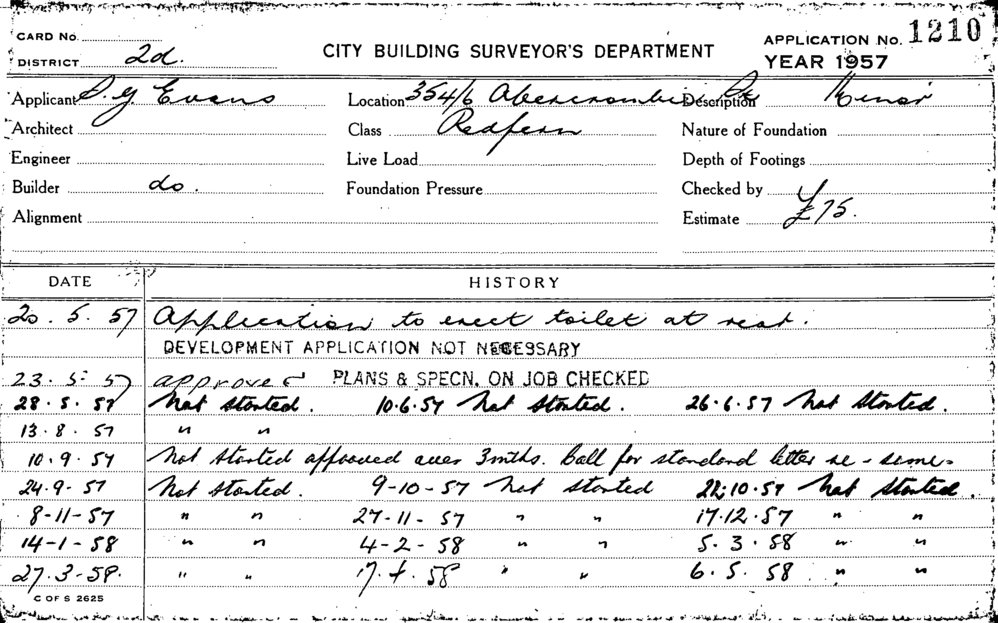 CARD No.
CITY BUILDING SURVEYOR'S DEPARTMENT
APPLICATION No. 1210
DISTRICT 2d.
YEAR 1957
Applicant S. G Evans Location 354/6 Abercrombie St Description Minor
Architect Class Redfern Nature of Foundation
Engineer Live Load Depth of Footings
Builder do. Foundation Pressure Checked by
Alignment Estimate £75.
DATE HISTORY
20. 5. 57 Application to erect toilet at rear.
DEVELOPMENT APPLICATION NOT NECESSARY
23. 5. 57 approved PLANS & SPECN. ON JOB CHECKED
28. 5. 57 Not started. 10.6.57 Not started. 26.6.57 Not started.
13. 8. 57 " "
10. 9. 57 Not started approved over 3mths. Call for standard letter re-same.
24. 9. 57 Not started. 9-10-57 Not started 22.10.57 Not started.
8-11-57 " " 27-11-57 " " 17.12.57 " "
14-1-58 " " 4-2-58 " " 5. 3. 58 " "
27.3-58. " " 17.4.58 " " 6. 5. 58 " "
C OF S 2625